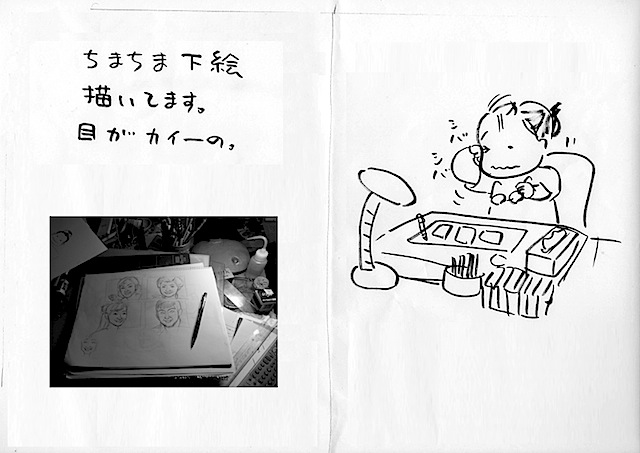 ちまちま下絵
描いてます。
目がカイーの。
シパ
シパ